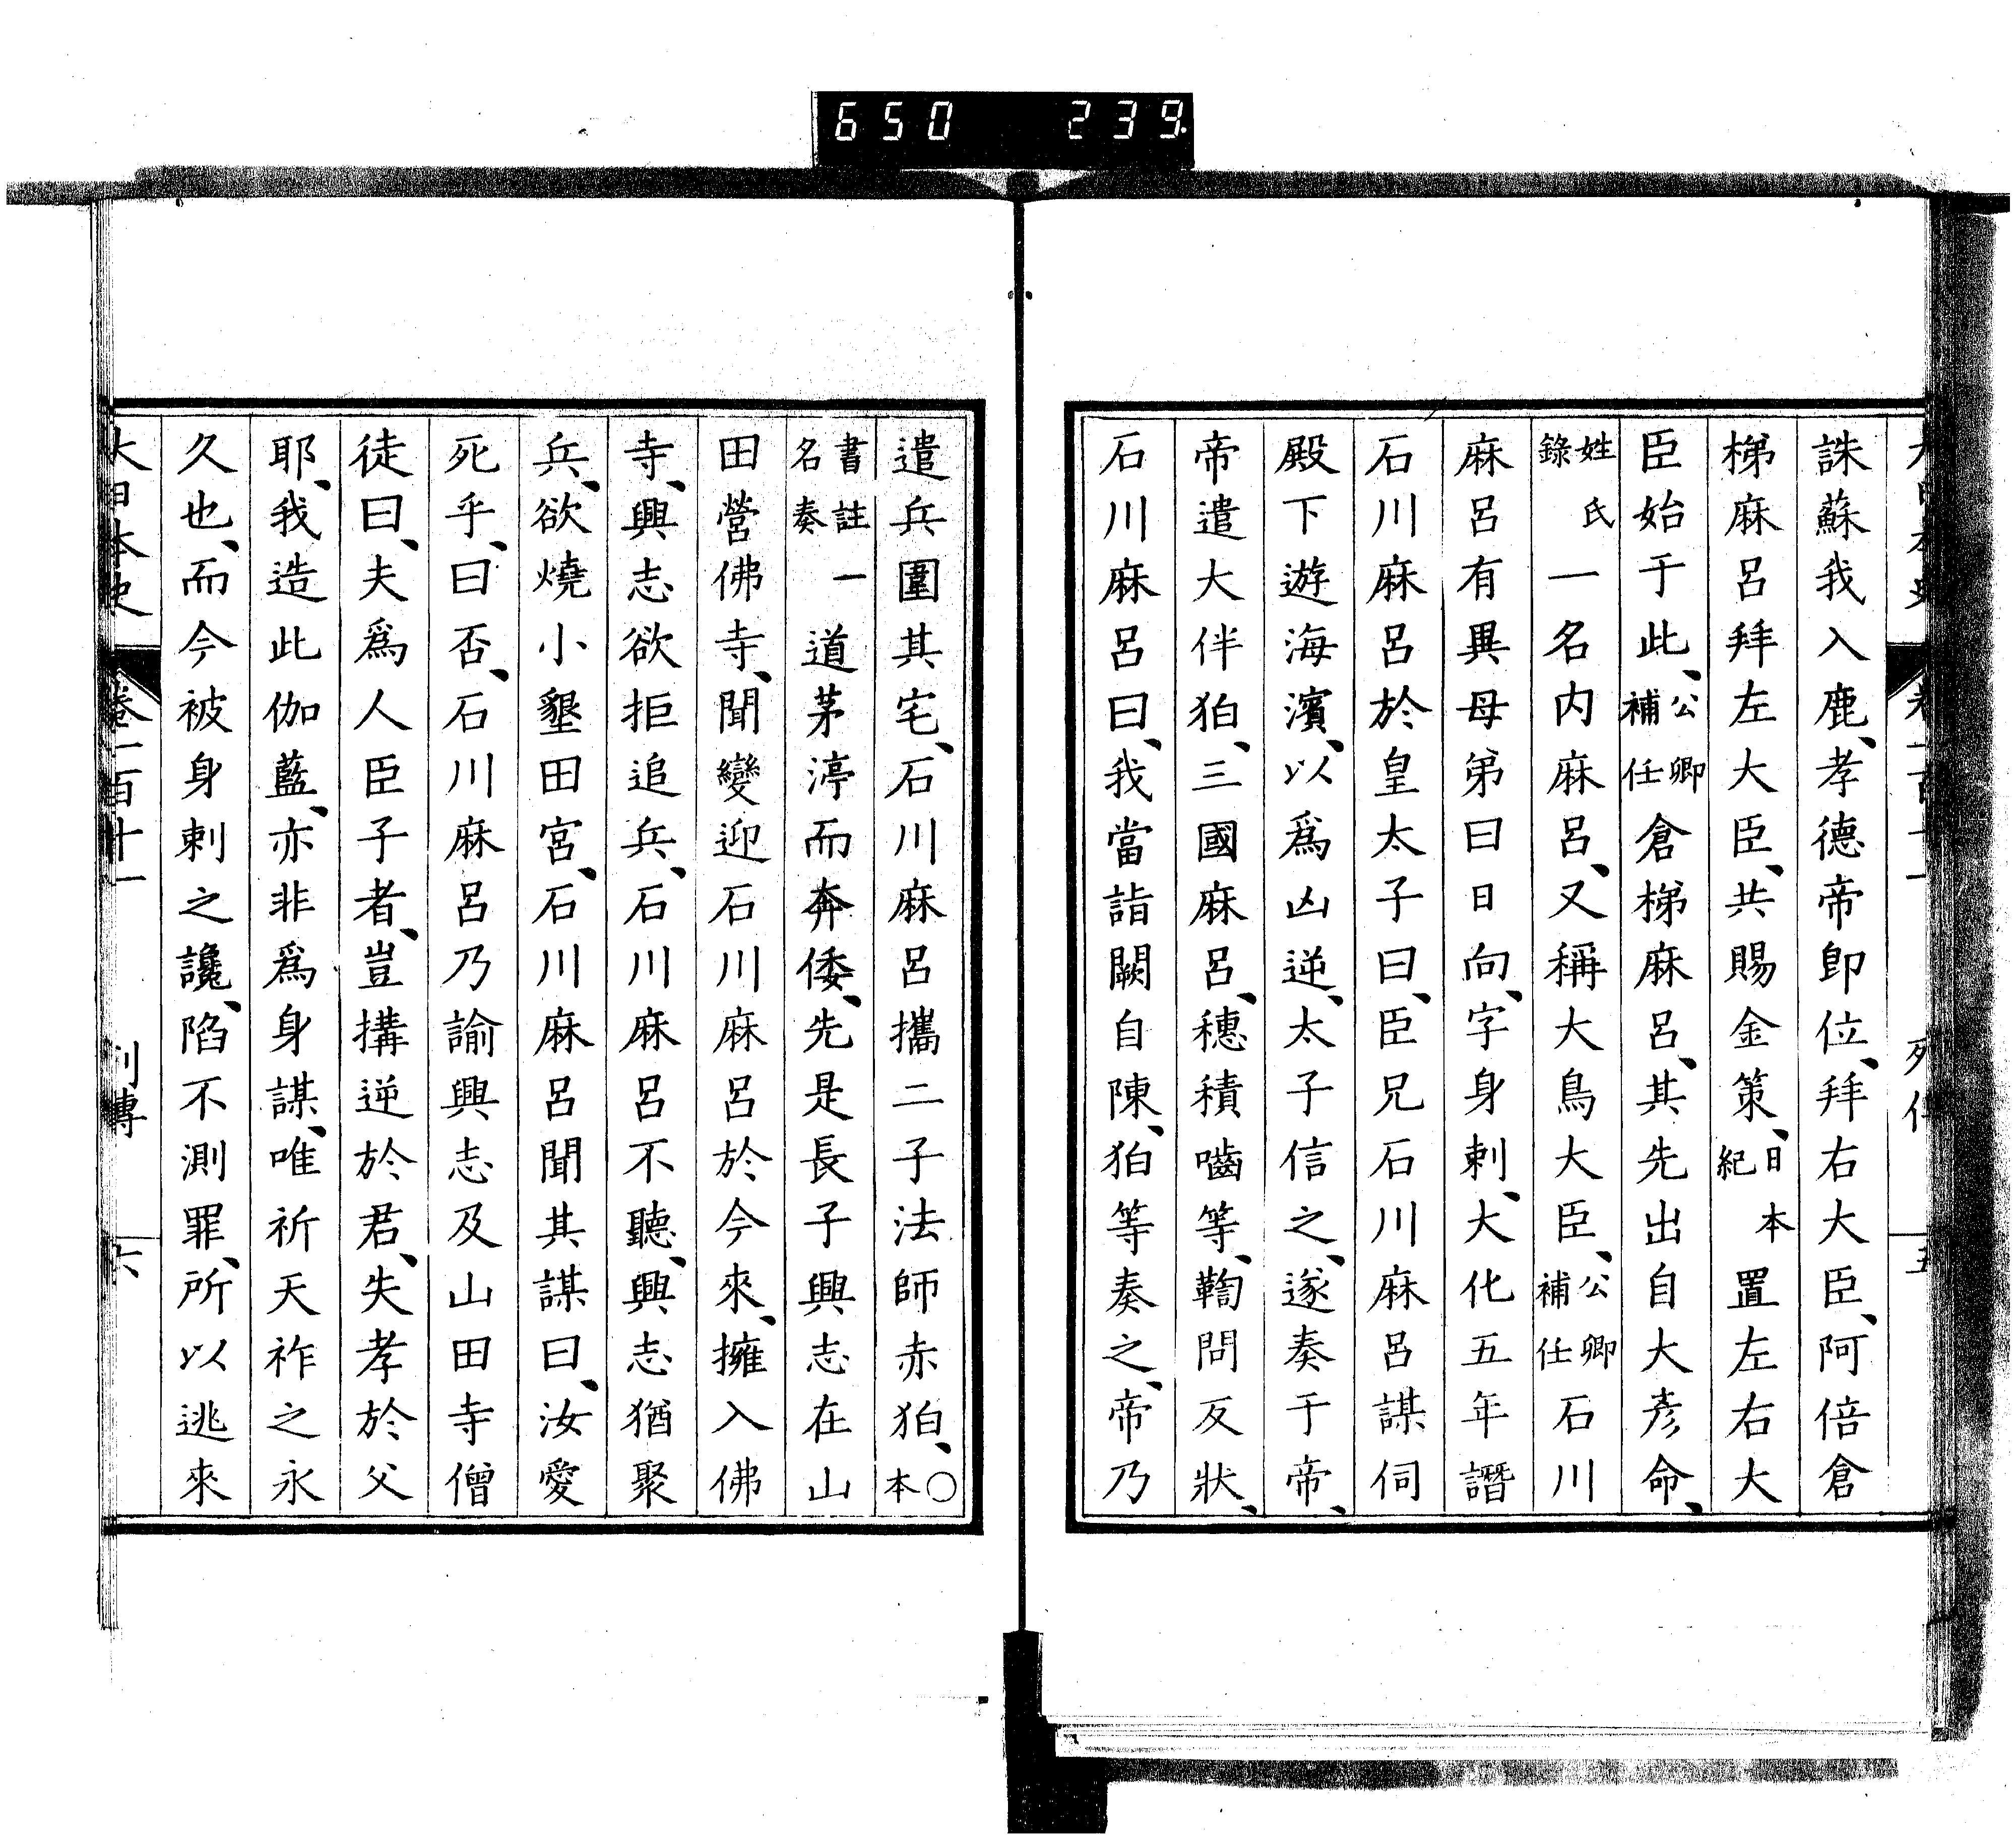 650 239
誅蘇我入鹿、孝德帝卽位、拜右大臣、阿倍倉
梯麻呂拜左大臣、共賜金策、日本紀置左右大
臣始于此、公卿補任倉梯麻呂、其先出自大彥命、
姓氏錄一名內麻呂、又稱大鳥大臣、公卿補任石川
麻呂有異母弟曰日向、字身刺、大化五年譖
石川麻呂於皇太子曰、臣兄石川麻呂謀伺
殿下遊海濱、以爲凶逆、太子信之、遂奏于帝、
帝遣大伴狛、三國麻呂、穗積嚙等、鞫問反狀、
石川麻呂曰、我當詣闕自陳、狛等奏之、帝乃
遣兵圍其宅、石川麻呂攜二子法師赤狛、〇本
書註名秦一道茅渟而奔倭、先是長子興志在山
田營佛寺、聞變迎石川麻呂於今來、擁入佛
寺、興志欲拒追兵、石川麻呂不聽、興志猶聚
兵、欲燒小墾田宮、石川麻呂聞其謀曰、汝愛
死乎、曰否、石川麻呂乃諭興志及山田寺僧
徒曰、夫爲人臣子者、豈搆逆於君、失孝於父
耶、我造此伽藍、亦非爲身謀、唯祈天祚之永
久也、而今被身刺之讒、陷不測罪、所以逃來
大日本史 卷一百十一 列傳 六